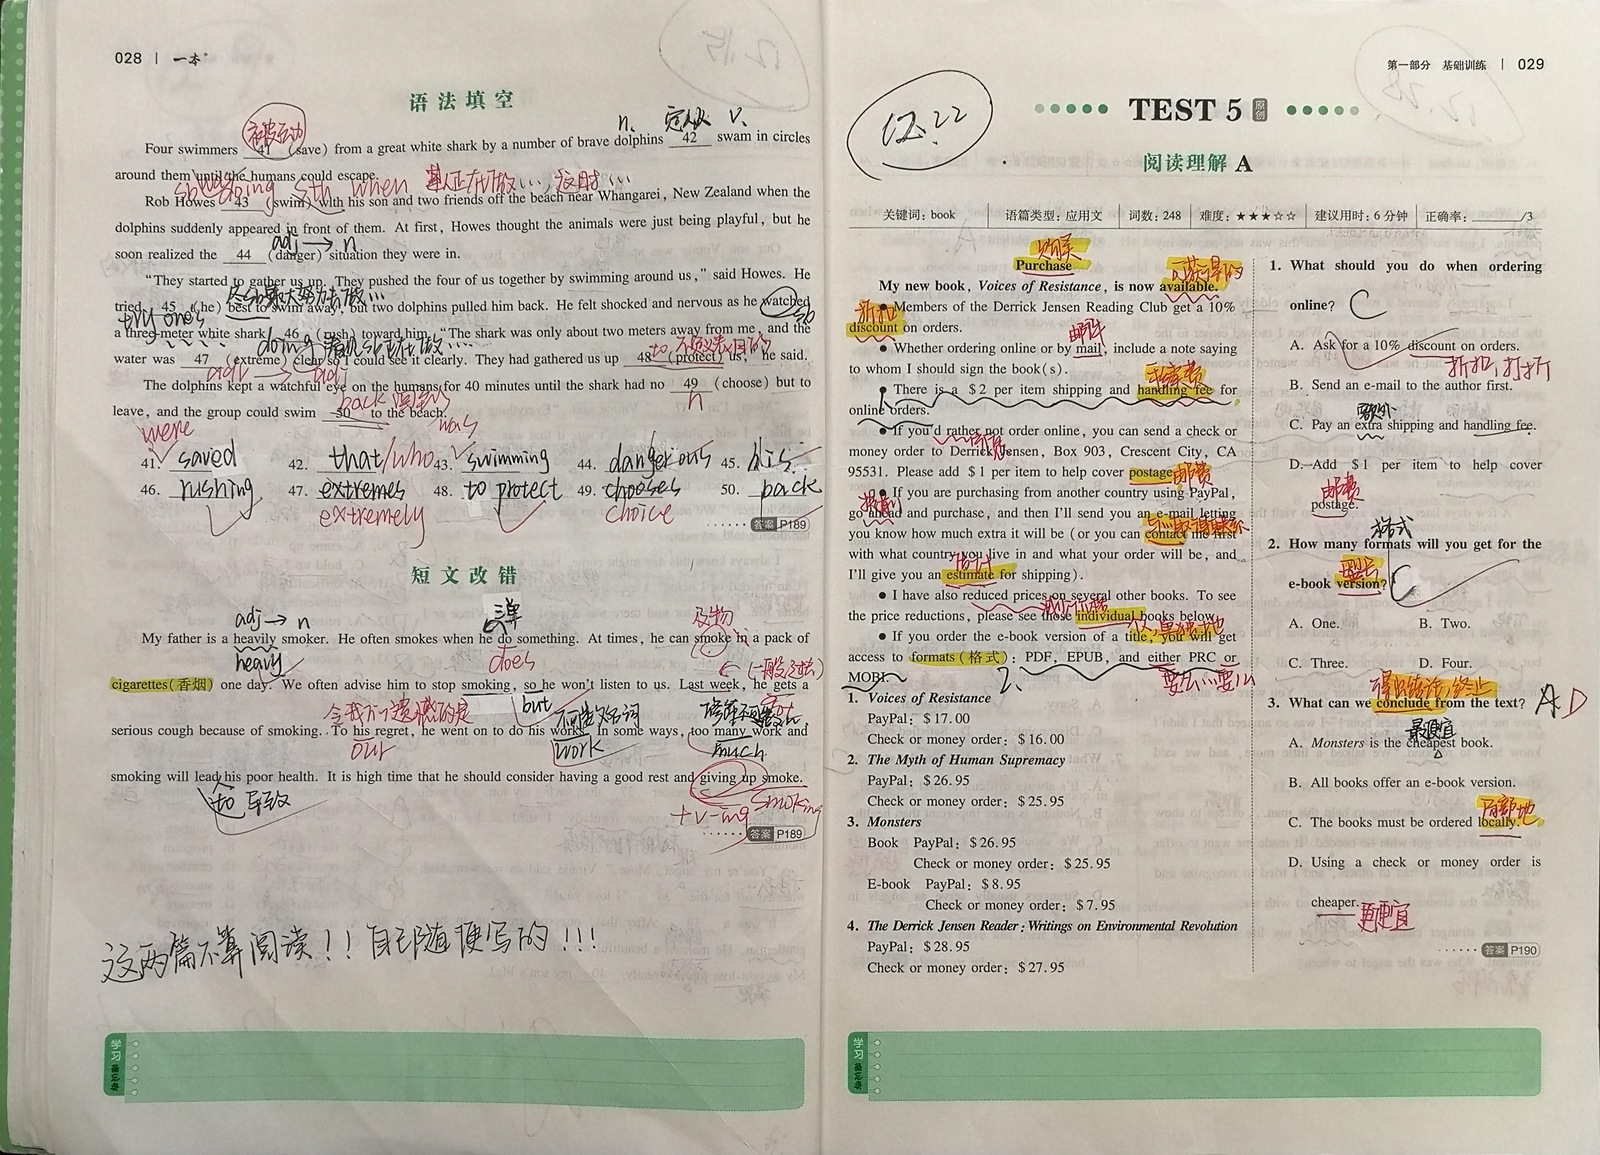 028 | 一本
语法填空
衩被动
n. 定从 v.
Four swimmers 41 (save) from a great white shark by a number of brave dolphins 42 swam in circles
around them until the humans could escape.
sb was doing sth when 某人正在做…，这时…
Rob Howes 43 (swim) with his son and two friends off the beach near Whangarei, New Zealand when the
dolphins suddenly appeared in front of them. At first, Howes thought the animals were just being playful, but he
adj → n
soon realized the 44 (danger) situation they were in.
“They started to gather us up. They pushed the four of us together by swimming around us,” said Howes. He
尽某最大努力去做…
tried 45 (he) best to swim away, but two dolphins pulled him back. He felt shocked and nervous as he watched
try one's
sb
a three-meter white shark 46 (rush) toward him. “The shark was only about two meters away from me, and the
doing 看见sb正在做…
water was 47 (extreme) clear so I could see it clearly. They had gathered us up 48 (protect) us,” he said.
adv → adj
The dolphins kept a watchful eye on the humans for 40 minutes until the shark had no 49 (choose) but to
n
back
leave, and the group could swim 50 to the beach.
were has
41. saved 42. that/who 43. swimming 44. dangerous 45. his
46. rushing 47. extremes 48. to protect 49. chooses 50. back
extremely choice
答案 P189
短文改错
adj → n 三单 及物
My father is a heavily smoker. He often smokes when he do something. At times, he can smoke in a pack of
heavy does
(一般过去)
cigarettes(香烟) one day. We often advise him to stop smoking, so he won't listen to us. Last week, he gets a
but got
令我们遗憾的是 不可数名词
serious cough because of smoking. To his regret, he went on to do his works. In some ways, too many work and
our work much
smoking will lead his poor health. It is high time that he should consider having a good rest and giving up smoke.
to 导致
+v-ing smoking
答案 P189
这两篇不算阅读！！自己随便写的！！！
学习
第一部分 基础训练 | 029
12.22
TEST 5 原创
阅读理解 A
关键词：book 语篇类型：应用文 词数：248 难度：★★★☆☆ 建议用时：6 分钟 正确率：______/3
购买
Purchase
可获得的
My new book, Voices of Resistance, is now available.
折扣
● Members of the Derrick Jensen Reading Club get a 10%
discount on orders.
邮件
● Whether ordering online or by mail, include a note saying
to whom I should sign the book(s).
手续费
● There is a $2 per item shipping and handling fee for
online orders.
● If you'd rather not order online, you can send a check or
money order to Derrick Jensen, Box 903, Crescent City, CA
95531. Please add $1 per item to help cover postage. 邮费
● If you are purchasing from another country using PayPal,
go ahead and purchase, and then I'll send you an e-mail letting
与…取得联系
you know how much extra it will be (or you can contact me first
with what country you live in and what your order will be, and
估计
I'll give you an estimate for shipping).
● I have also reduced prices on several other books. To see
the price reductions, please see those individual books below.
● If you order the e-book version of a title, you will get
access to formats(格式): PDF, EPUB, and either PRC or
MOBI. 2. 要么…要么
1. Voices of Resistance
PayPal: $17.00
Check or money order: $16.00
2. The Myth of Human Supremacy
PayPal: $26.95
Check or money order: $25.95
3. Monsters
Book PayPal: $26.95
Check or money order: $25.95
E-book PayPal: $8.95
Check or money order: $7.95
4. The Derrick Jensen Reader: Writings on Environmental Revolution
PayPal: $28.95
Check or money order: $27.95
1. What should you do when ordering
online? C
A. Ask for a 10% discount on orders.
折扣，打折
B. Send an e-mail to the author first.
额外
C. Pay an extra shipping and handling fee.
D. Add $1 per item to help cover
邮费
postage.
格式
2. How many formats will you get for the
版本
e-book version? C
A. One. B. Two.
C. Three. D. Four.
得出结论，终止
3. What can we conclude from the text? A D
最便宜
A. Monsters is the cheapest book.
B. All books offer an e-book version.
局部地
C. The books must be ordered locally.
D. Using a check or money order is
cheaper. 更便宜
答案 P190
学习